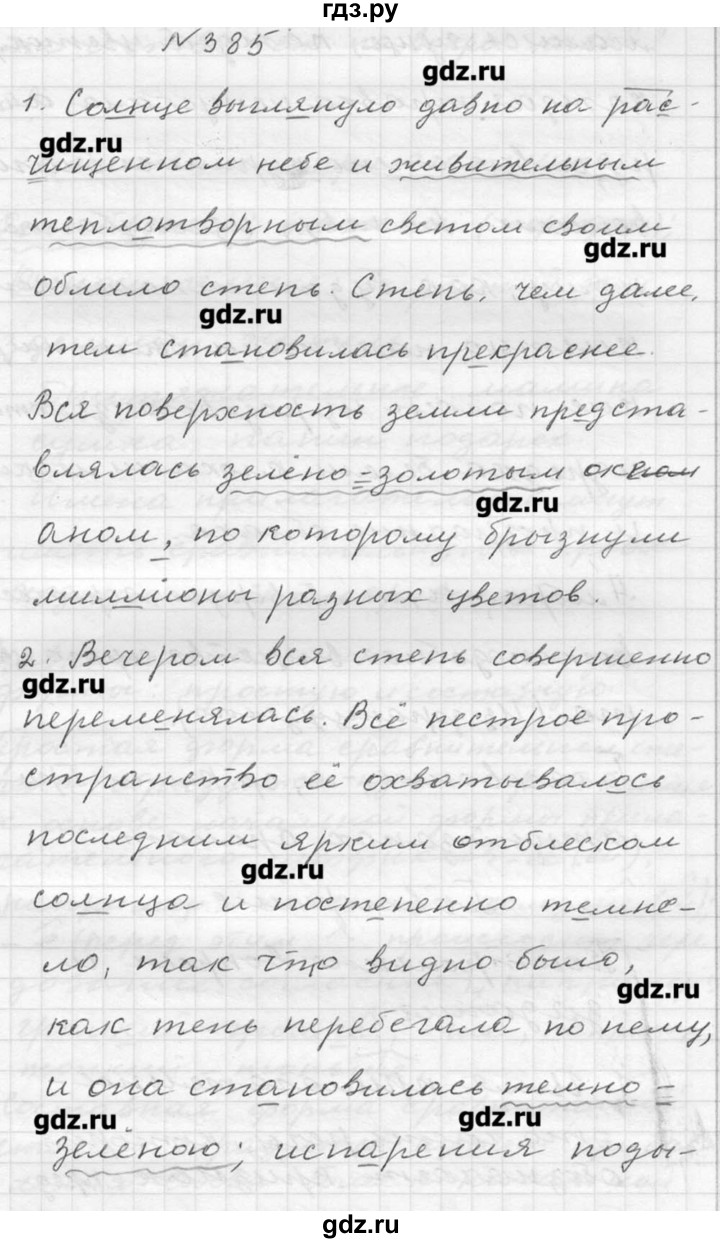 гдз.ру
№385
gdz.ru
1. Солнце выглянуло давно на рас-
gdz.ru
чищенном небе и живительным
теплотворным светом своим
gdz.ru
облило степь. Степь, чем далее,
gdz.ru
тем становилась прекраснее.
Вся поверхность земли предста-
влялась зелёно=золотым оке
gdz.ru
аном, по которому брызнули
миллионы разных цветов.
2. Вечером вся степь совершенно
gdz.ru
переменялась. Всё пестрое про-
странство её охватывалось
последним ярким отблеском
gdz.ru
солнца и постепенно темне-
ло, так что видно было,
gdz.ru
как тень перебегала по нему,
и она становилась темно=
gdz.ru gdz.ru
зелёною; испарения поды-
gdz.ru